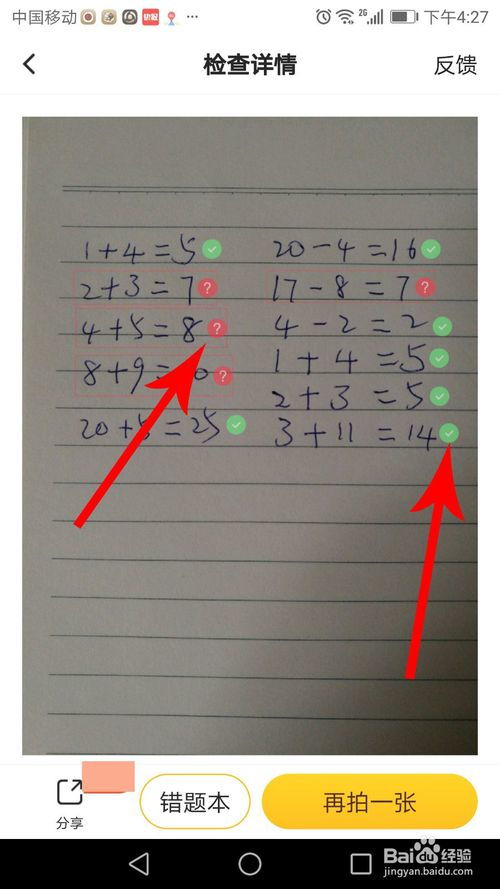 中国移动 2G 下午4:27
检查详情 反馈
1+4=5 20-4=16
2+3=7 ? 17-8=7 ?
4+5=8 ? 4-2=2
8+9= 0 ? 1+4=5
2+3=5
20+5=25 3+11=14
分享 错题本 再拍一张
Bai 经验
jingyan.baidu.com